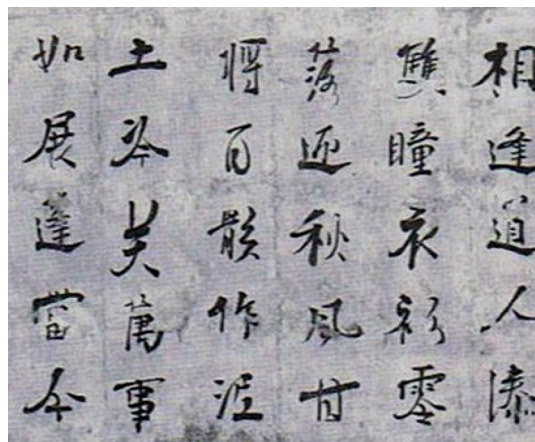 相逢道人漆
雙瞳衣衫零
落迎秋風甘
將百骸作泥
土冷笑萬事
如展蓬當今